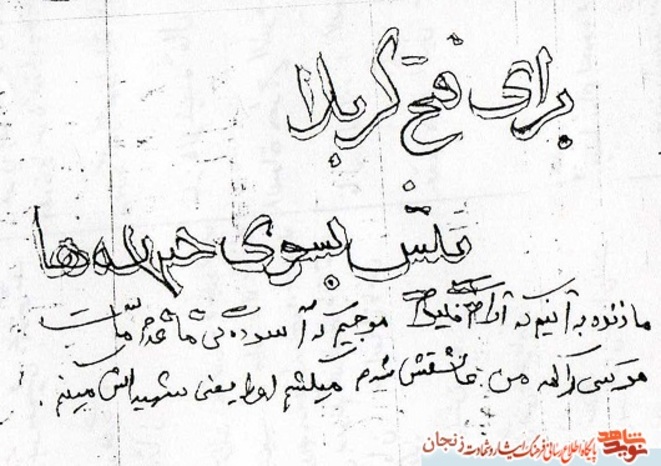 برای فتح کربلا
پیش بسوی جبهه ها
ما زنده به آنیم که آرام نگیریم موجیم که آسودگی ما عدم ماست
هر کسی را که من عاشقش شدم میکشم او را یعنی شهیدش میکنم.
نوید شاهد پایگاه اطلاع رسانی فرهنگ ایثار و شهادت زنجان